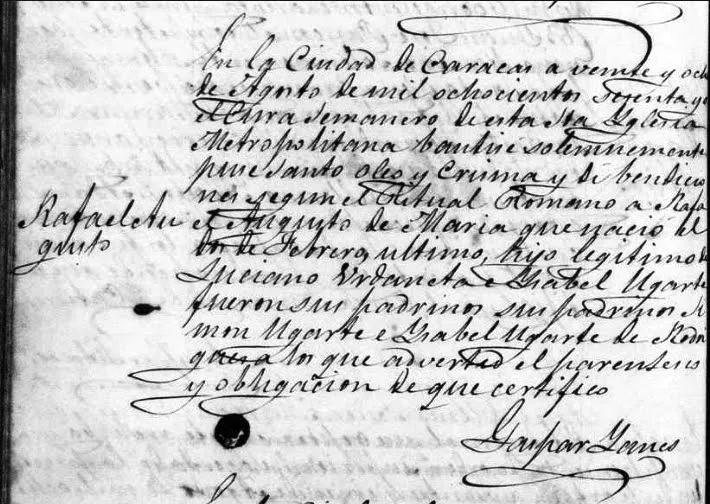 En la Ciudad de Caracas a veinte y och
de Agosto de mil ochocientos setenta y
el Cura semanero de esta Sta Yglesia
Metropolitana bautisé solemnemente
puse santo oleo y Crisma y dí bendicio
nes segun el Ritual Romano a Rafa
Rafael Au
gusto
el Augusto de Maria que nació el
de Febrero ultimo, hijo legitimo de
Luciano Urdaneta e Ysabel Ugarte
fueron sus padrinos sus padrinos Si
mon Ugarte e Ysabel Ugarte de Rodri
a los que advertí el parentesco
y obligacion de que certifico
Gaspar Yanes